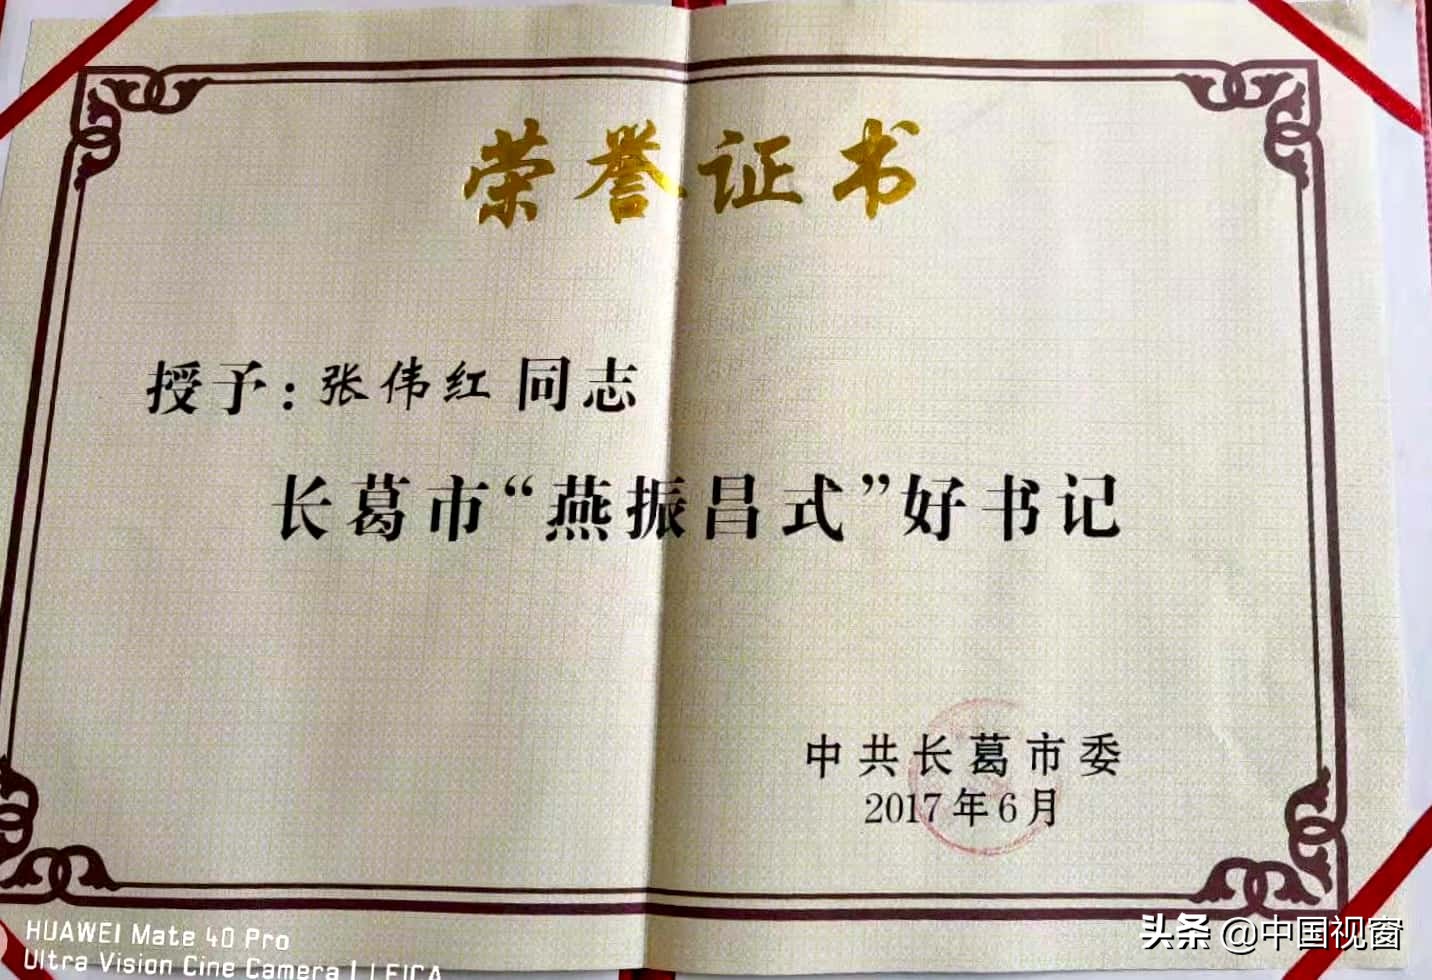 荣誉证书
授予：张伟红 同志
长葛市“燕振昌式”好书记
中共长葛市委
2017年6月
HUAWEI Mate 40 Pro
Ultra Vision Cine Camera | LEICA
头条 @中国视窗